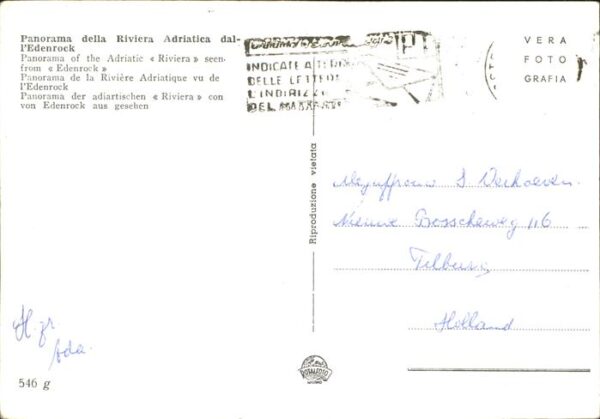 Panorama della Riviera Adriatica dal-
l'Edenrock
Panorama of the Adriatic « Riviera » seen
from « Edenrock »
Panorama de la Rivière Adriatique vu de
l'Edenrock
Panorama der adiartischen « Riviera » con
von Edenrock aus gesehen
INDICATE
DELLE LETTERE
L'INDIRIZZO
DEL
VERA
FOTO
GRAFIA
Riproduzione vietata
Mejuffrouw J Verhoeven.
Nieuwe Bosscheweg 116
Tilburg
Holland
H. gr.
Ada.
546 g